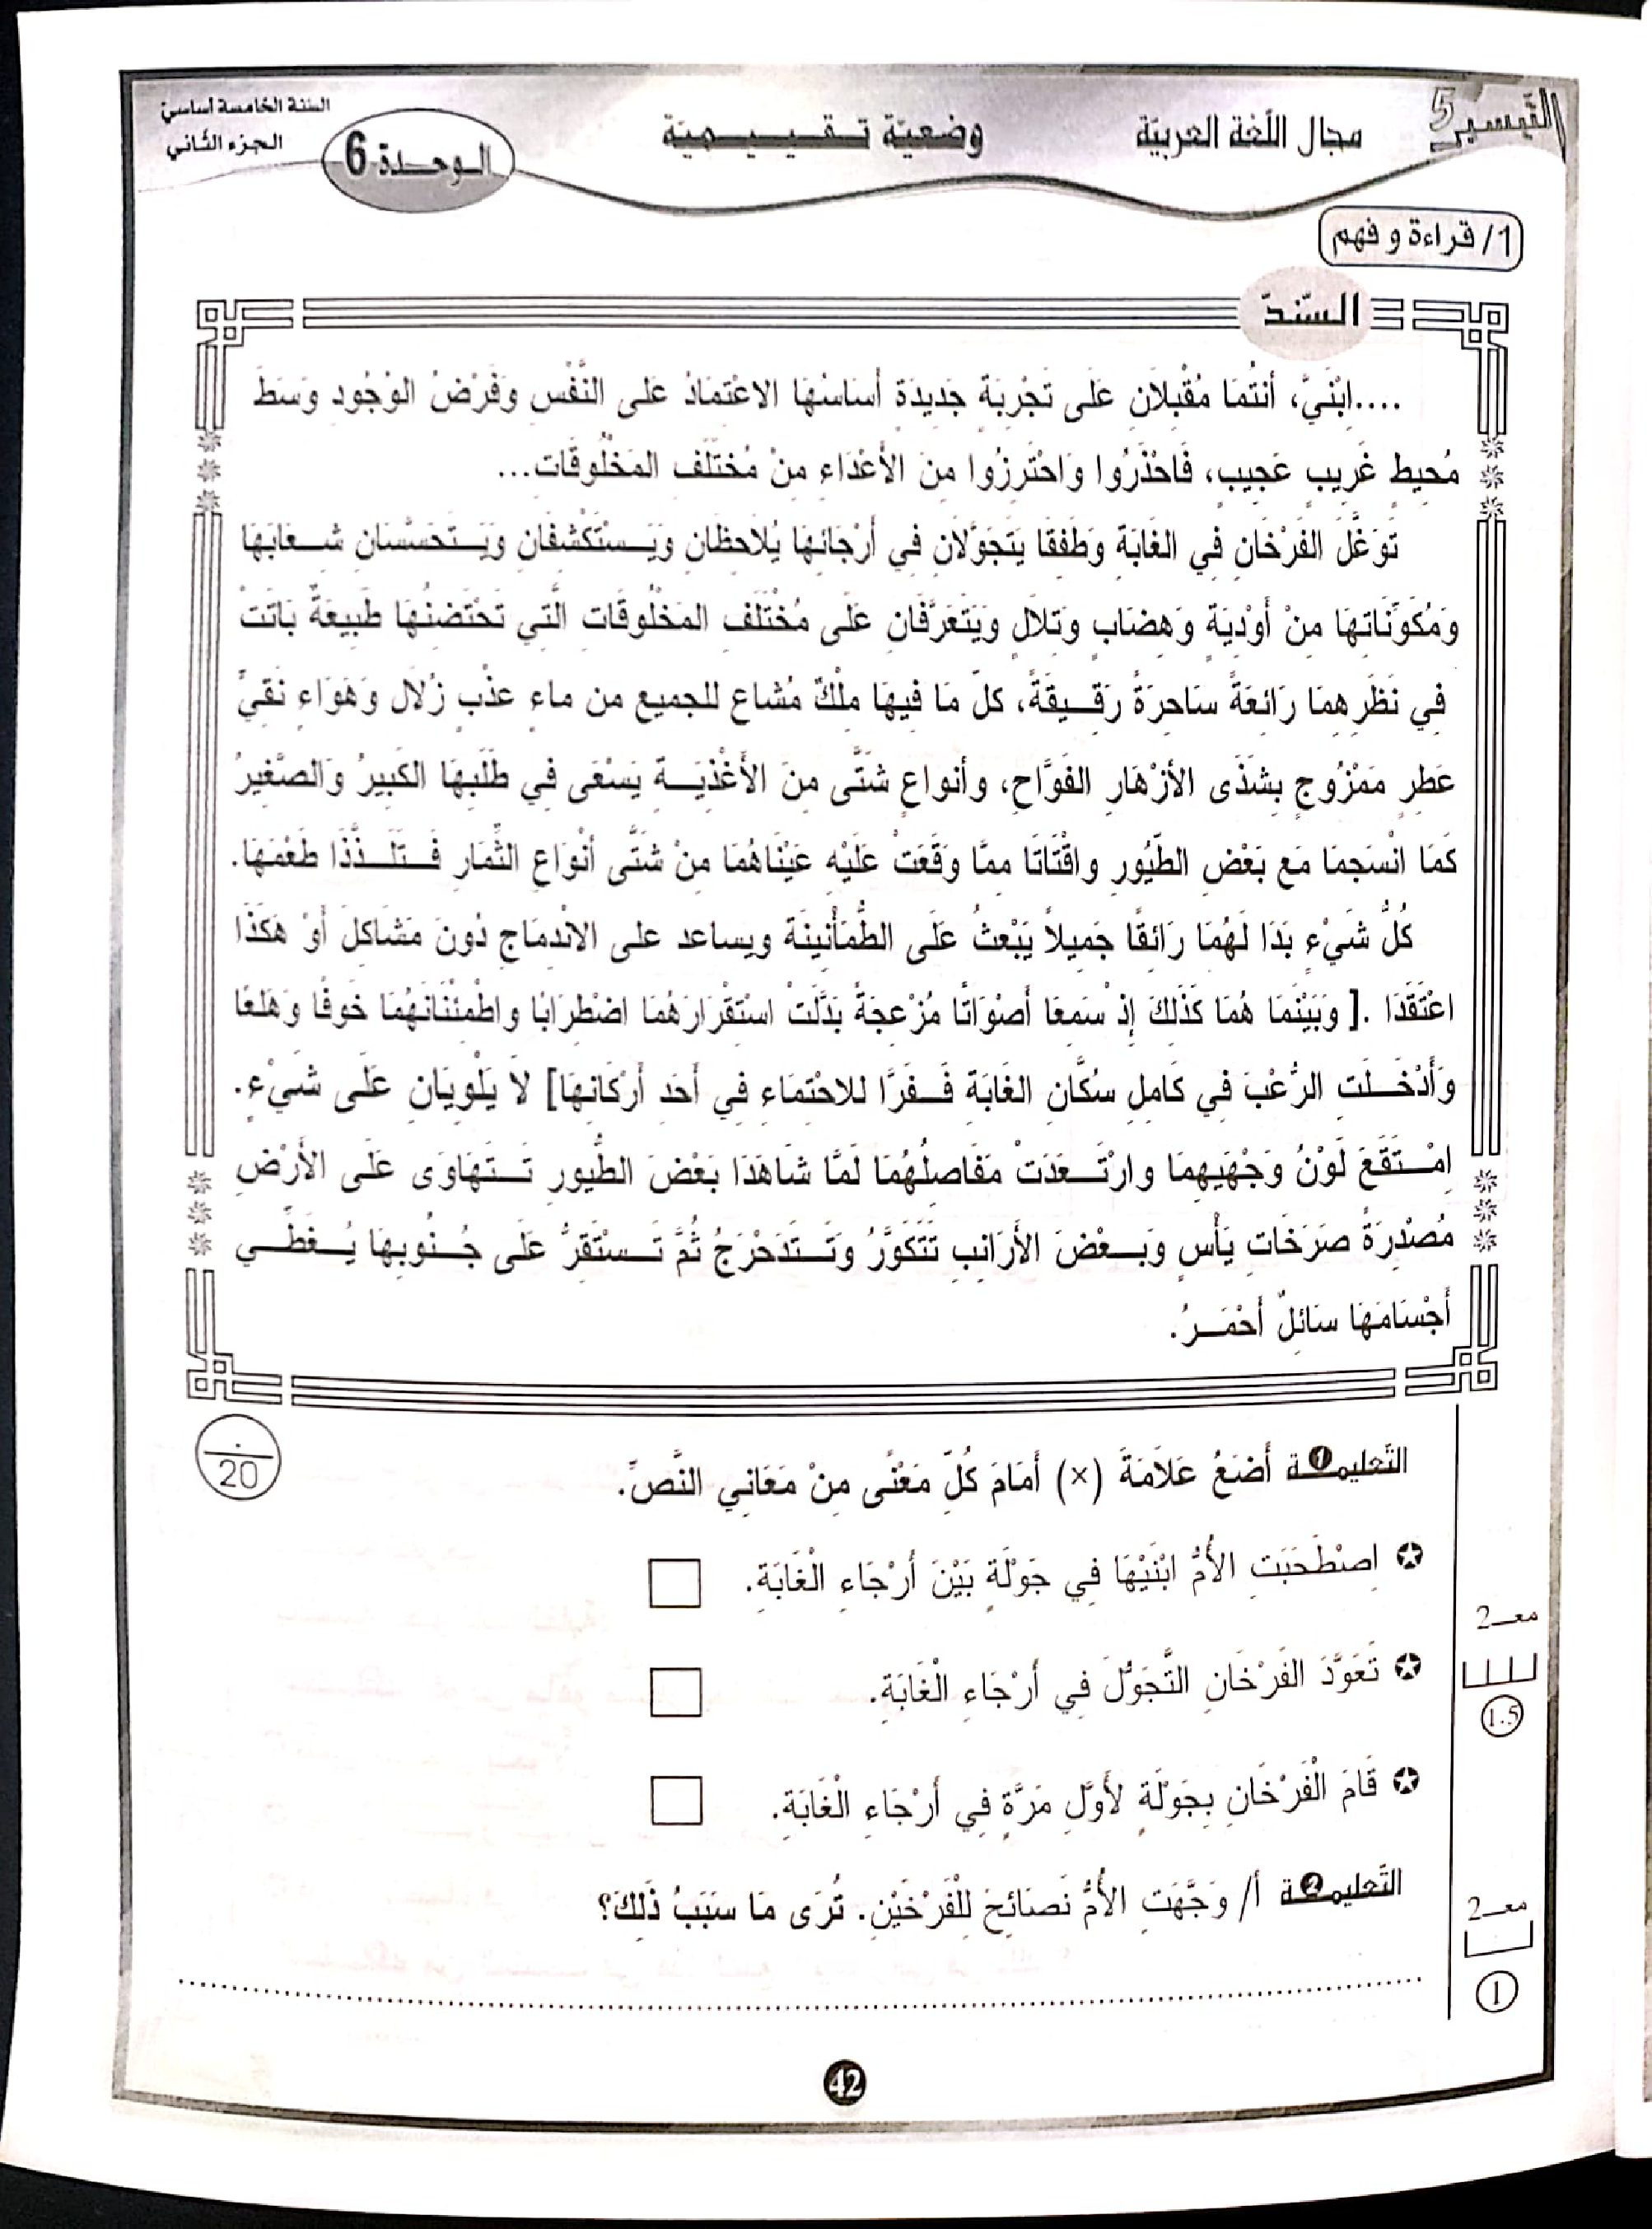 التيسير 5
مجال اللّغة العربيّة
وضعيّة تقييميّة
الوحدة 6
السنة الخامسة أساسيّ
الجزء الثّاني
1/ قراءة و فهم
السّندّ
....اِبْنَيَّ، أنتُمَا مُقْبِلاَنِ عَلَى تَجْرِبَةٍ جَدِيدَةٍ أسَاسُهَا الاعْتِمَادُ عَلى النَّفْسِ وَفَرْضُ الوُجُودِ وَسَطَ
مُحِيطٍ غَرِيبٍ عَجِيبٍ، فَاحْذَرُوا وَاحْتَرِزُوا مِنَ الأَعْدَاءِ مِنْ مُخْتَلَفِ المَخْلُوقَاتِ...
تَوَغَّلَ الفَرْخَانِ فِي الغَابَةِ وَطَفِقَا يَتَجَوَّلاَنِ فِي أَرْجَائِهَا يُلاَحِظَانِ وَيَسْتَكْشِفَانِ وَيَتَحَسَّسَانِ شِعَابَهَا
وَمُكَوِّنَاتِهَا مِنْ أَوْدِيَةٍ وَهِضَابٍ وَتِلاَلٍ وَيَتَعَرَّفَانِ عَلَى مُخْتَلَفِ المَخْلُوقَاتِ الَّتِي تَحْتَضِنُهَا طَبِيعَةٌ بَاتَتْ
فِي نَظَرِهِمَا رَائِعَةً سَاحِرَةً رَقِيقَةً، كلّ مَا فِيهَا مِلْكٌ مُشَاع للجميع من ماءٍ عذْبٍ زُلاَلٍ وَهَوَاءٍ نَقِيٍّ
عَطِرٍ مَمْزُوجٍ بِشَذَى الأزْهَارِ الفَوَّاحِ، وأنواعٍ شَتَّى مِنَ الأَغْذِيَةِ يَسْعَى فِي طَلَبِهَا الكَبِيرُ وَالصَّغِيرُ
كَمَا انْسَجمَا مَع بَعْضِ الطّيُورِ واقْتَاتَا مِمَّا وَقَعَتْ عَلَيْهِ عَيْنَاهُمَا مِنْ شَتَّى أنْوَاعِ الثِّمَارِ فَتَلَذَّذَا طَعْمَهَا.
كُلُّ شَيْءٍ بَدَا لَهُمَا رَائِقًا جَمِيلاً يَبْعَثُ عَلَى الطُّمَأْنِينَةِ ويساعد على الانْدِمَاجِ دُونَ مَشَاكِلَ أَوْ هَكَذَا
اعْتَقَدَا .[ وَبَيْنَمَا هُمَا كَذَلِكَ إِذْ سَمِعَا أَصْوَاتًا مُزْعِجَةً بَدَّلَتْ اسْتِقْرَارَهُمَا اضْطِرَابًا واطْمِئْنَانَهُمَا خَوْفًا وَهَلَعًا
وَأَدْخَلَتِ الرُّعْبَ فِي كَامِلِ سُكَّانِ الغَابَةِ فَفَرَّا للاحْتِمَاءِ فِي أَحَدِ أَرْكَانِهَا] لاَ يَلْوِيَانِ عَلَى شَيْءٍ.
اِمْتَقَعَ لَوْنُ وَجْهَيْهِمَا وارْتَعَدَتْ مَفَاصِلُهُمَا لَمَّا شَاهَدَا بَعْضَ الطُّيُورِ تَتَهَاوَى عَلَى الأَرْضِ
مُصْدِرَةً صَرَخَاتِ يَأْسٍ وَبَعْضَ الأَرَانِبِ تَتَكَوَّرُ وَتَتَدَحْرَجُ ثُمَّ تَسْتَقِرُّ عَلَى جُنُوبِهَا يُغَطِّي
أَجْسَامَهَا سَائِلٌ أَحْمَرُ.
20
التَّعليمة 1 أَضَعُ عَلاَمَةَ (×) أَمَامَ كُلِّ مَعْنًى مِنْ مَعَانِي النَّصِّ.
✪ اِصْطَحَبَتِ الأُمُّ ابْنَيْهَا فِي جَوْلَةٍ بَيْنَ أَرْجَاءِ الْغَابَةِ.
✪ تَعَوَّدَ الفَرْخَانِ التَّجَوُّلَ فِي أَرْجَاءِ الْغَابَةِ.
✪ قَامَ الْفَرْخَانِ بِجَوْلَةٍ لأَوَّلِ مَرَّةٍ فِي أَرْجَاءِ الْغَابَةِ.
معـ2
1.5
التَّعليمة 2 أ/ وَجَّهَتِ الأُمُّ نَصَائِحَ لِلْفَرْخَيْنِ. تُرَى مَا سَبَبُ ذَلِكَ؟
معـ2
1
42